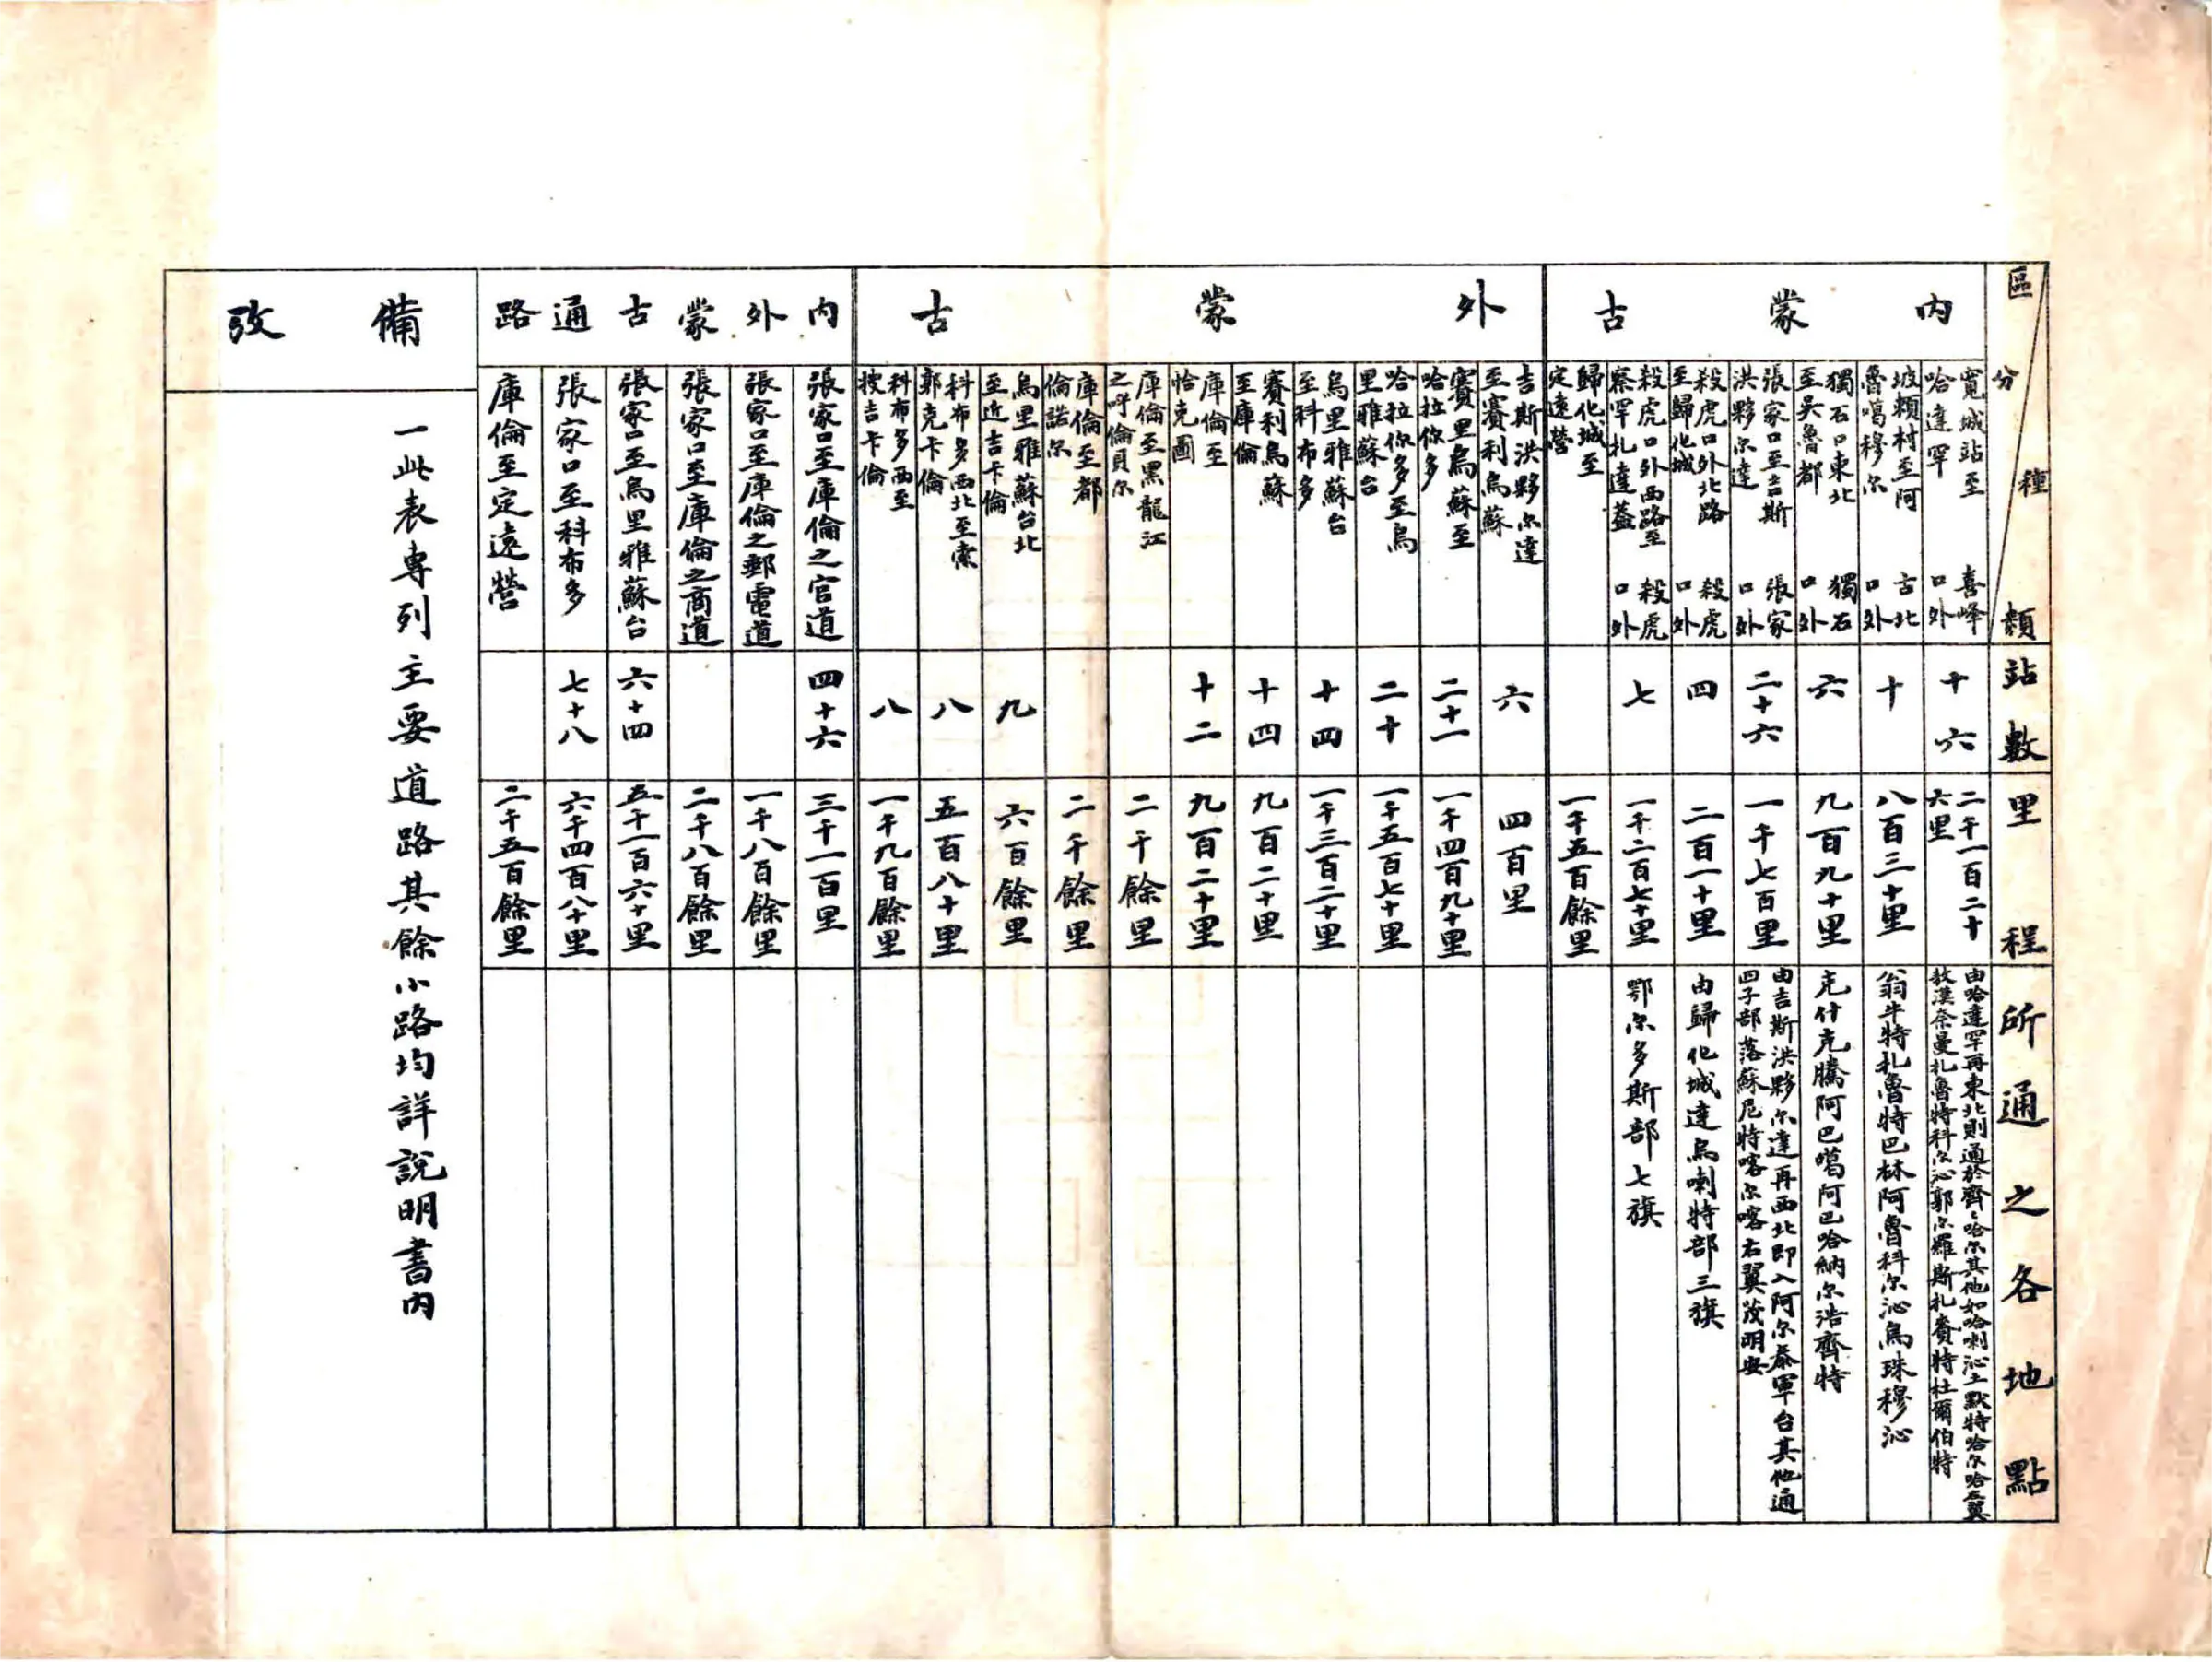 區分 種類
站數
里程
所通之各地點
內蒙古
寬城站至
哈達罕
喜峰
口外
十六
二千一百二十
六里
由哈達罕再東北則通於齊々哈尔其他如哈喇沁土默特哈尔哈左翼
敖漢奈曼札魯特科尔沁郭尔羅斯札賚特杜爾伯特
坡賴村至阿
魯噶穆尔
古北
口外
十
八百三十里
翁牛特札魯特巴林阿魯科尔沁烏珠穆沁
獨石口東北
至吳魯都
獨石
口外
六
九百九十里
克什克騰阿巴噶阿巴哈納尔浩齊特
張家口至吉斯
洪夥尔達
張家
口外
二十六
一千七百里
由吉斯洪夥尔達再西北即入阿尔泰軍台其他通
四子部落蘇尼特喀尔喀右翼茂明安
殺虎口外北路
至歸化城
殺虎
口外
四
二百一十里
由歸化城達烏喇特部三旗
殺虎口外西路至
察罕札達蓋
殺虎
口外
七
一千二百七十里
鄂尔多斯部七旗
歸化城至
定遠營
一千五百餘里
外蒙古
吉斯洪夥尔達
至賽利烏蘇
六
四百里
賽里烏蘇至
哈拉你多
二十一
一千四百九十里
哈拉你多至烏
里雅蘇台
二十
一千五百七十里
烏里雅蘇台
至科布多
十四
一千三百二十里
賽利烏蘇
至庫倫
十四
九百二十里
庫倫至
恰克圖
十二
九百二十里
庫倫至黑龍江
之呼倫貝尔
二千餘里
庫倫至都
倫諾尔
二千餘里
烏里雅蘇台北
至近吉卡倫
九
六百餘里
科布多西北至索
郭克卡倫
八
五百八十里
科布多西至
搜吉卡倫
八
一千九百餘里
內外蒙古通路
張家口至庫倫之官道
四十六
三千一百里
張家口至庫倫之郵電道
一千八百餘里
張家口至庫倫之商道
二千八百餘里
張家口至烏里雅蘇台
六十四
五千一百六十里
張家口至科布多
七十八
六千四百八十里
庫倫至定遠營
二千五百餘里
備攷
一此表專列主要道路其餘小路均詳說明書內